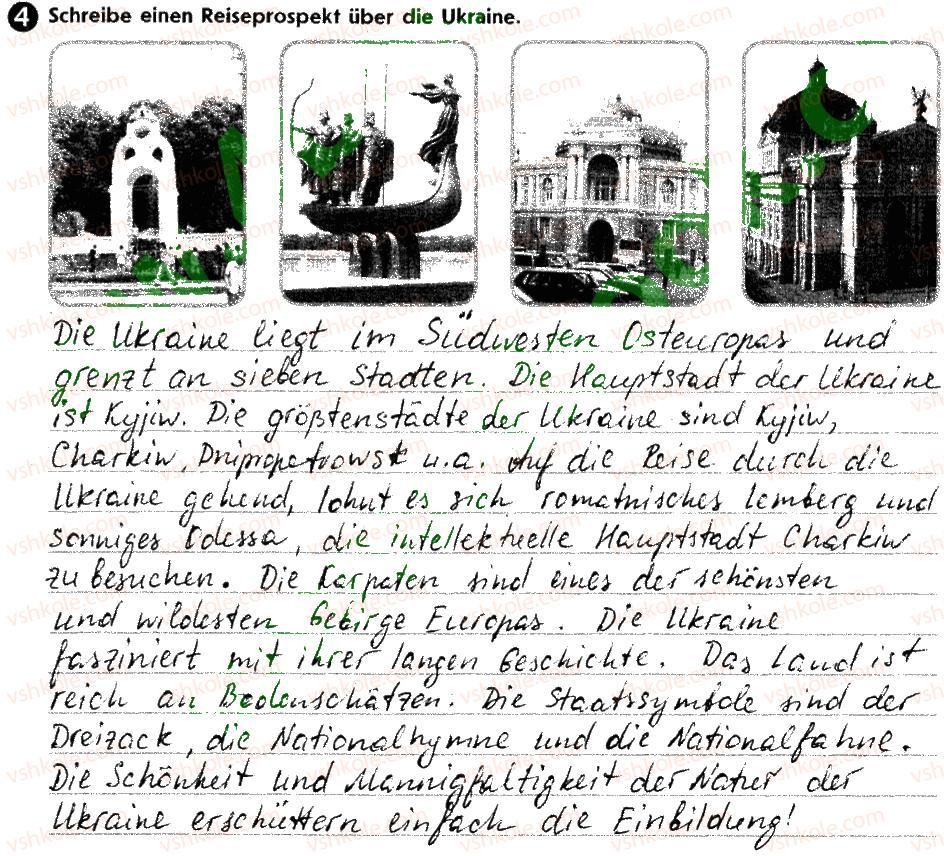 4 Schreibe einen Reiseprospekt über die Ukraine.
Die Ukraine liegt im Südwesten Osteuropas und
grenzt an sieben Stadten. Die Hauptstadt der Ukraine
ist Kyjiw. Die größtenstädte der Ukraine sind Kyjiw,
Charkiw, Dnipropetrowsk u.a. Auf die Reise durch die
Ukraine gehend, lohnt es sich romatnisches Lemberg und
sonniges Odessa, die intellektuelle Hauptstadt Charkiw
zu besuchen. Die Karpaten sind eines der schönsten
und wildesten Gebirge Europas. Die Ukraine
fasziniert mit ihrer langen Geschichte. Das Land ist
reich an Bodenschätzen. Die Staatssymbole sind der
Dreizack, die Nationalhymne und die Nationalfahne.
Die Schönheit und Mannigfaltigkeit der Natur der
Ukraine erschüttern einfach die Einbildung!
vshkole.com